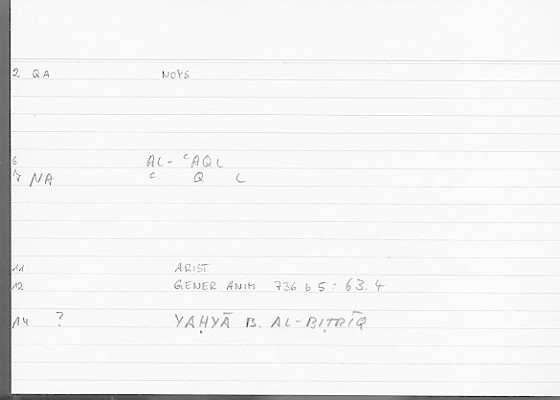 2 QA NOYS
6 AL-ʿAQL
7 NA ʿ Q L
11 ARIST
12 GENER ANIM 736 b 5 : 63.4
14 ? YAḤYĀ B. AL-BIṬRĪQ